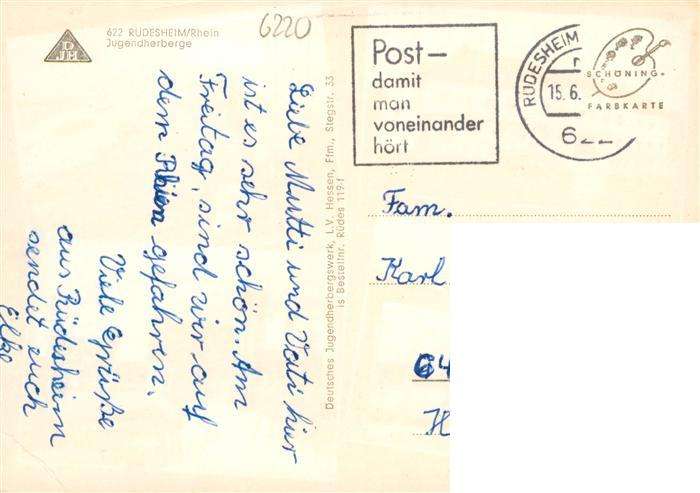 DJH
622 RÜDESHEIM/Rhein
Jugendherberge
6220
Liebe Mutti und Vati hier
ist es sehr schön. Am
Freitag, sind wir auf
dem Rhien gefahren.
Viele Grüße
aus Rüdesheim
sendet euch
Elke
Deutsches Jugendherbergswerk, L.V. Hessen, Ffm., Stegstr. 33
is Bestellnr. Rüdes 119-f
Post–
damit
man
voneinander
hört
RÜDESHEIM
15.6.
SCHÖNING
FARBKARTE
Fam.
Karl
64
H